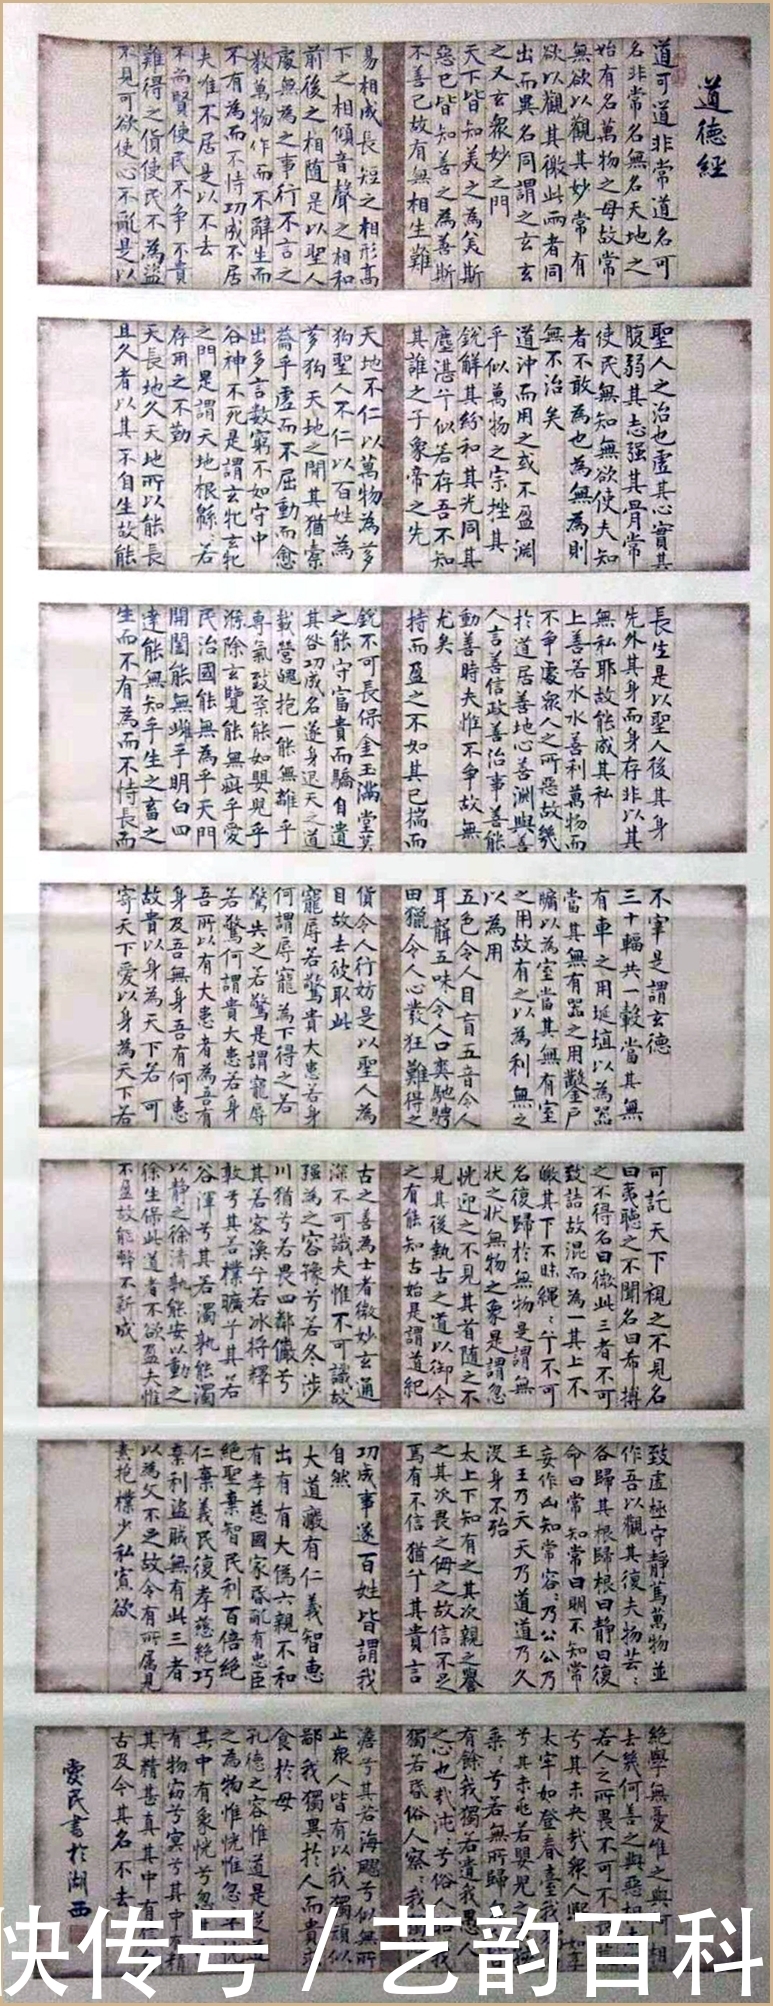 道德經
道可道非常道名可
名非常名無名天地之
始有名萬物之母故常
無欲以觀其妙常有
欲以觀其徼此兩者同
出而異名同謂之玄玄
之又玄衆妙之門
天下皆知美之為美斯
惡已皆知善之為善斯
不善已故有無相生難
易相成長短之相形高
下之相傾音聲之相和
前後之相随是以聖人
處無為之事行不言之
教萬物作而不辭生而
不有為而不恃功成不居
夫惟不居是以不去
不尚賢使民不争不貴
難得之貨使民不為盜
不見可欲使心不亂是以
聖人之治也虛其心實其
腹弱其志强其骨常
使民無知無欲使夫知
者不敢為也為無為則
無不治矣
道沖而用之或不盈淵
乎似萬物之宗挫其
銳解其紛和其光同其
塵湛兮似若存吾不知
其誰之子象帝之先
天地不仁以萬物為芻
狗聖人不仁以百姓為
芻狗天地之間其猶橐
籥乎虛而不屈動而愈
出多言數窮不如守中
谷神不死是謂玄牝玄牝
之門是謂天地根緜:若
存用之不勤
天長地久天地所以能長
且久者以其不自生故能
長生是以聖人後其身
先外其身而身存非以其
無私耶故能成其私
上善若水水善利萬物而
不争處衆人之所惡故幾
於道居善地心善淵與善
人言善信政善治事善能
動善時夫惟不争故無
尤矣
持而盈之不如其已揣而
銳不可長保金玉滿堂莫
之能守富貴而驕自遺
其咎功成名遂身退天之道
載營魄抱一能無離乎
專氣致柔能如嬰兒乎
滌除玄覽能無疵乎愛
民治國能無為乎天門
開闔能無雌乎明白四
達能無知乎生之畜之
生而不有為而不恃長而
不宰是謂玄德
三十輻共一轂當其無
有車之用埏埴以為器
當其無有器之用鑿户
牖以為室當其無有室
之用故有之以為利無之
以為用
五色令人目盲五音令人
耳聾五味令人口爽馳騁
田獵令人心發狂難得之
貨令人行妨是以聖人為
目故去彼取此
寵辱若驚貴大患若身
何謂辱寵為下得之若
驚失之若驚是謂寵辱
若驚何謂貴大患若身
吾所以有大患者為吾有
身及吾無身吾有何患
故貴以身為天下若可
寄天下愛以身為天下若
可託天下視之不見名
曰夷聽之不聞名曰希搏
之不得名曰微此三者不可
致詰故混而為一其上不
皦其下不昧繩:兮不可
名復歸於無物是謂無
狀之状無物之象是謂忽
恍迎之不見其首随之不
見其後執古之道以御今
之有能知古始是謂道紀
古之善為士者微妙玄通
深不可識夫惟不可識故
强為之容豫兮若冬涉
川猶兮若畏四鄰儼兮
其若容渙兮若冰將釋
敦兮其若樸曠兮其若
谷渾兮其若濁孰能濁
以靜之徐清孰能安以動之
徐生保此道者不欲盈夫惟
不盈故能弊不新成
致虛極守靜篤萬物並
作吾以觀其復夫物芸:
各歸其根歸根曰靜曰復
命曰常知常曰明不知常
妄作凶知常容:乃公公乃
王王乃天天乃道道乃久
沒身不殆
太上下知有之其次親之譽
之其次畏之侮之故信不足
焉有不信猶兮其貴言
功成事遂百姓皆謂我
自然
大道廢有仁義智惠
出有有大偽六親不和
有孝慈國家昏亂有忠臣
絕聖棄智民利百倍絕
仁棄義民復孝慈絕巧
棄利盜賊無有此三者
以為文不足故令有所属見
素抱樸少私寡欲
絕學無憂唯之與阿相
去幾何善之與惡相
若人之所畏不可不
兮其未央哉衆人熙如享
太牢如登春臺我
兮其未兆若嬰兒之
乘:兮若無所歸
有餘我獨若遺我愚人
之心也哉沌:兮俗人
獨若昏俗人察:我
澹兮其若海飂兮似無所
止衆人皆有以我獨頑似
鄙我獨異於人而貴
食於母
孔德之容惟道是從道
之為物惟恍惟忽
其中有象恍兮忽
有物窈兮冥兮其中有精
其精甚真其中有信
古及今其名不去
雯民書於湖西
快传号/艺韵百科